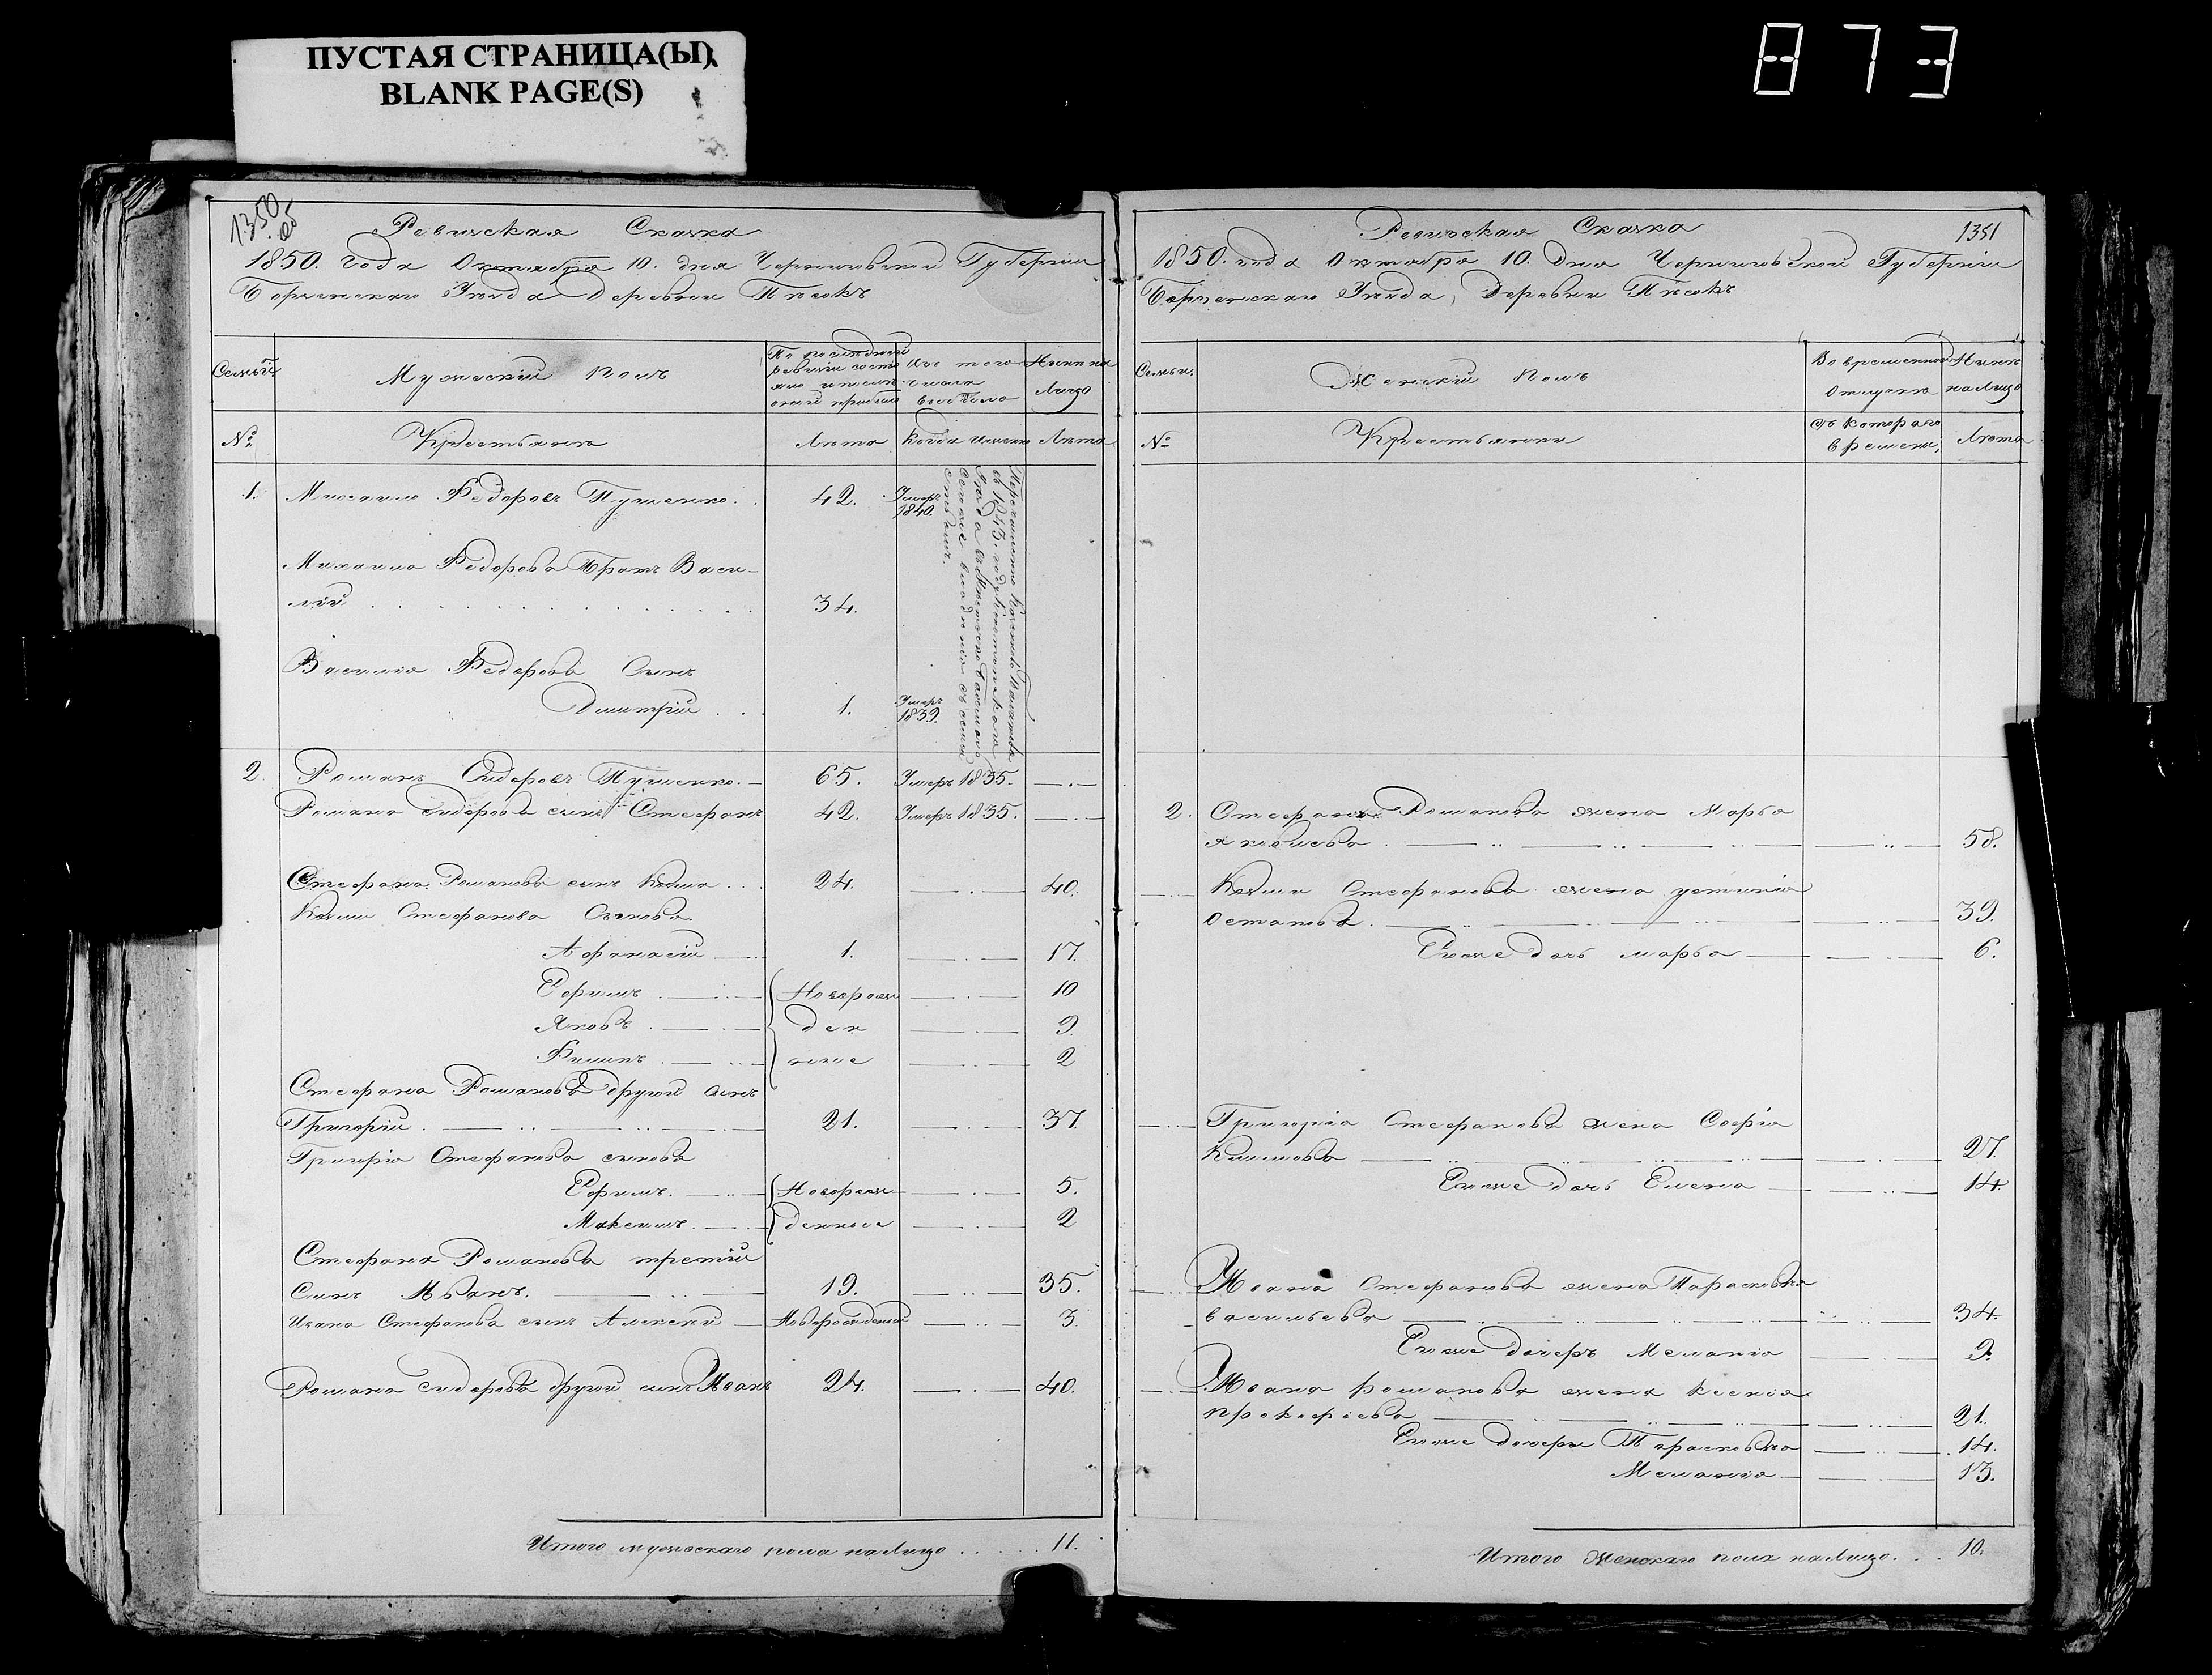 ПУСТАЯ СТРАНИЦА(Ы)
BLANK PAGE(S)
873
1350
об
Ревизская Сказка
1850. года Октября 10. дня Черниговской Губерніи
Борзенскаго Уѣзда Деревни Пѣсокъ
Семьи
Мужескій полъ
По последней ревизіи состояло и после оной прибыло
Изъ того числа выбыло
Нынѣ на Лицо
№
Крестьяне
Лѣта
Когда именно
Лѣта
1. Михаило Федоровъ Пушенко . . 42. Умеръ 1840.
Михаила Федорова Братъ Васи-
лій 34.
Василія Федорова Сынъ
Дмитрій . . 1. Умеръ 1839.
въ 1843. году
2. Романъ Сидоровъ Пушенко. 65. Умеръ 1835.
Романа Сидорова сынъ Стефанъ 42. Умеръ 1835.
Стефана Романова сынъ Козма . . . 24. 40.
Козми Стефанова Сынова
Афанасій 1. 17.
Ефимъ Новорож 10
Яковъ ден 9.
Филипъ ные 2
Стефана Романова другой сынъ
Григорій 21. 37.
Григорія Стефанова сынова
Ефимъ. Новорож 5.
Максимъ. денные 2
Стефана Романова третій
Сынъ Иванъ. 19. 35.
Ивана Стефанова сынъ Алексей Новорожденый 3.
Романа Сидорова другой сынъ Иванъ 24. 40.
Итого мужескаго пола налицо . . . . . 11.
Ревизская Сказка
1351
1850. года Октября 10. Дня Черниговской Губерніи
Борзенскаго Уѣзда, Деревни Пѣсокъ
Семьи.
Женскій полъ
Во временной отлучке
Нынѣ налицо
№
Крестьянки
съ котораго времени,
Лѣта
2. Стефана Романова жена Марья
Яковлева 58.
Козми Стефанова жена Устинія
Остапова. 39.
Егоже дочь марья 6.
Григорія Стефанова жена Софія
Климова 27.
Егоже дочь Елена 14.
Ивана Стефанова жена Парасковія
васильева 34.
Егоже дочерь Меланія 9.
Ивана романова жена ксенія
прокофіева 21.
Егоже дочери Парасковія 14.
Меланія 13.
Итого Женскаго пола налицо. . . 10.